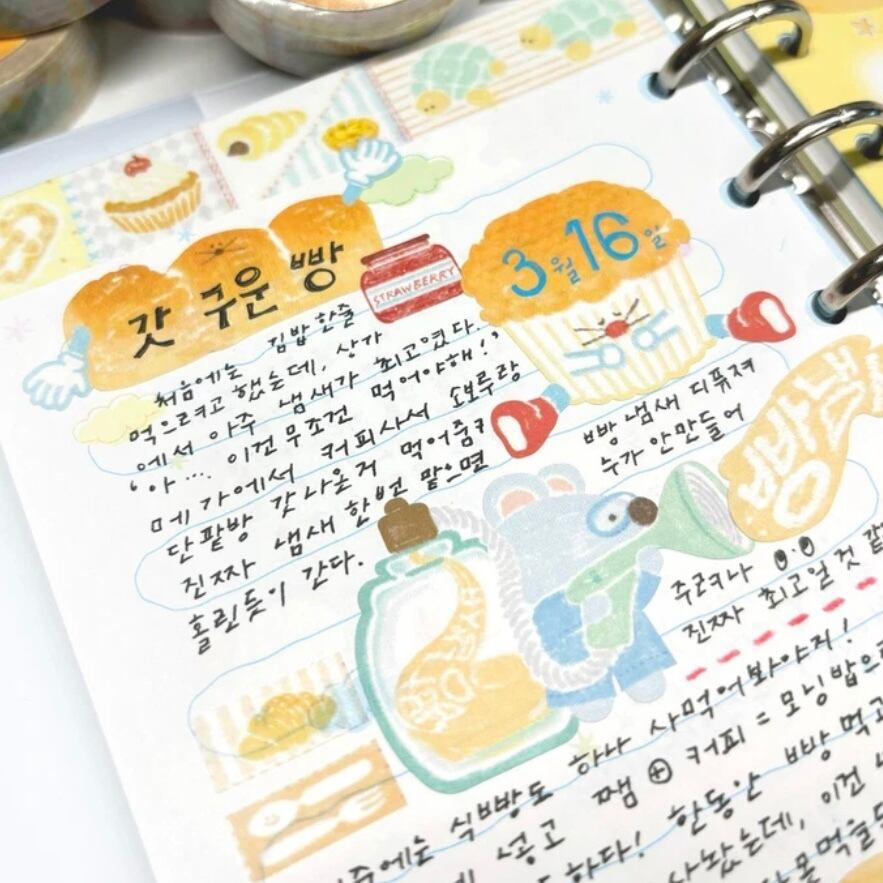 갓 구운 빵
STRAWBERRY
3월 16일
처음에는 김밥 한줄
먹으려고 했는데, 상가
에서 아주 냄새가 최고였다..
'아... 이건 무조건 먹어야해!'
메가에서 커피사서 소보루랑
단팥빵 갓 나온거 먹어줌ㅋ
진짜 냄새 한번 맡으면
홀린듯이 간다.
빵 냄새 디퓨져
누가 안만들어
주려나
진짜 최고일것 같
하나 사먹어봐야지!
주에는 식빵도
쨈 ⊕ 커피 = 모닝밥으로
하다! 한동안 빵 먹고
사놨는데, 이건